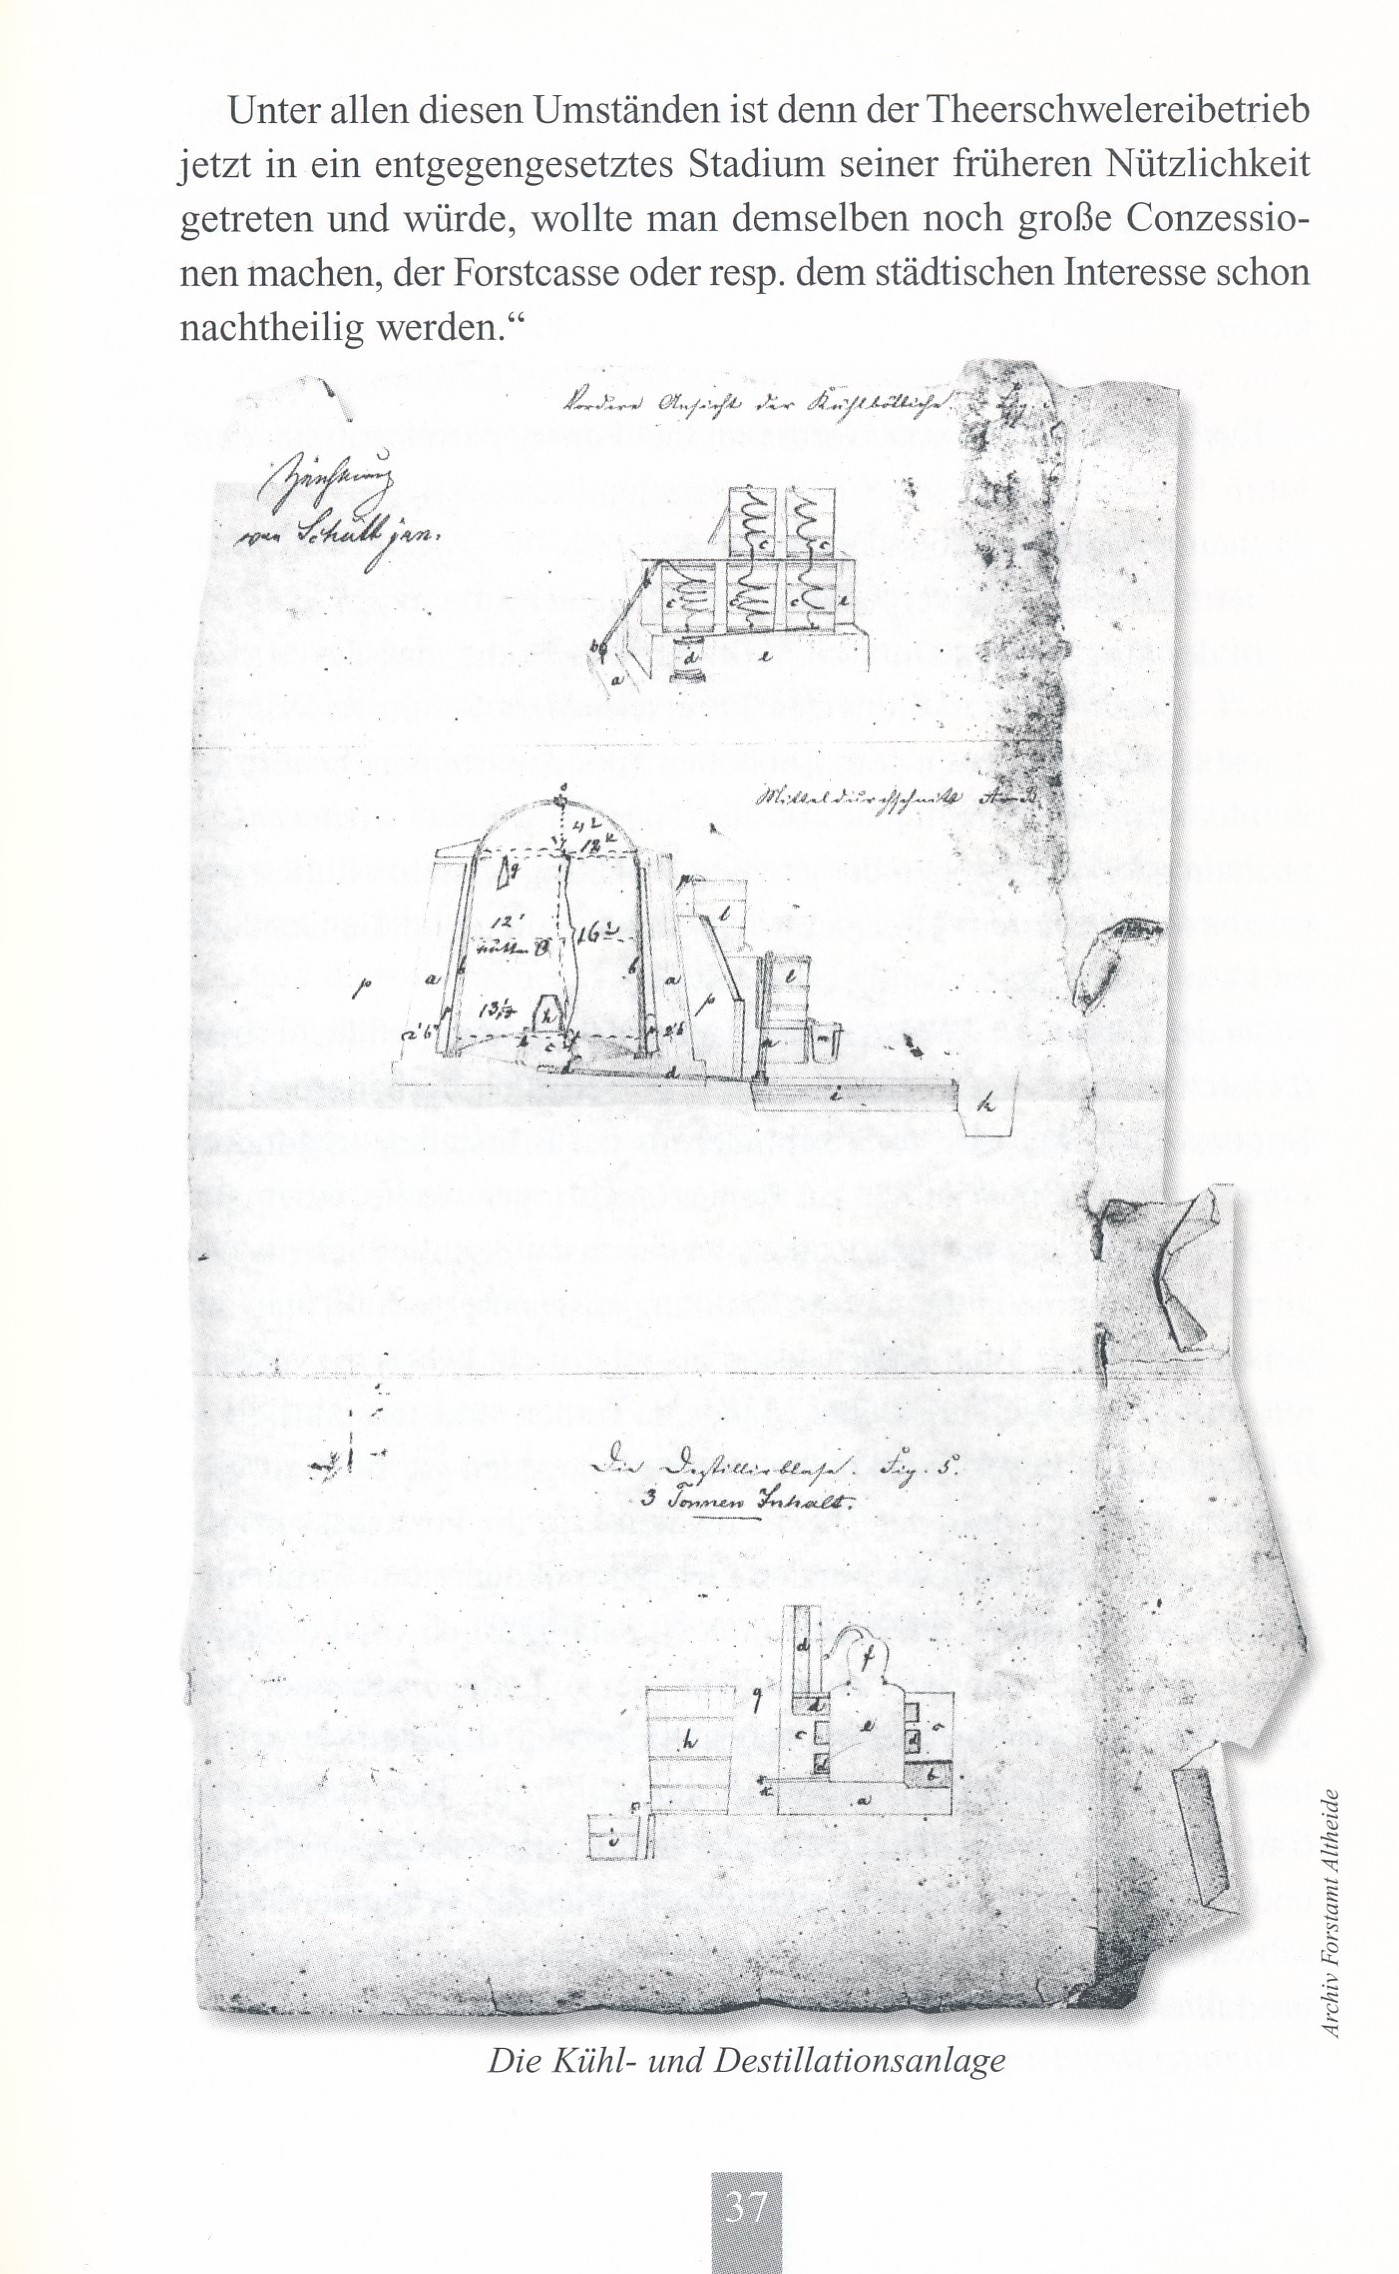 Unter allen diesen Umständen ist denn der Theerschwelereibetrieb
jetzt in ein entgegengesetztes Stadium seiner früheren Nützlichkeit
getreten und würde, wollte man demselben noch große Conzessio-
nen machen, der Forstcasse oder resp. dem städtischen Interesse schon
nachtheilig werden.“
Vordere Ansicht der Kühlbottiche.
Zeichnung
von Schütt jun.
c c
b c c c l
b d e
a
Mitteldurchschnitt A–B.
4½
12
g
p l
12'
16½
a b b a l
p p
13½ h
2'6" 2'6
c n m
d d
i k
Die Destillirblase. Fig. 5.
3 Tonnen Inhalt.
d f
g d
h c e c
d d
b
a
i
Archiv Forstamt Altheide
Die Kühl- und Destillationsanlage
37